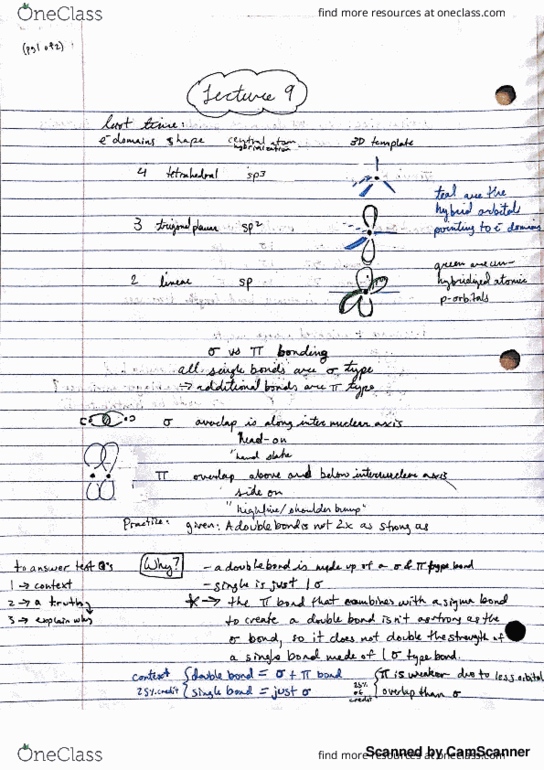 OneClass
find more resources at oneclass.com
(pg1 of 2)
Lecture 9
last time:
e- domains shape central atom hybridization 3D template
4 tetrahedral sp3
3 trigonal planar sp2
teal are the
hybrid orbitals
pointing to e- domains
2 linear sp
green are un-
hybridized atomic
p-orbitals
σ vs π bonding
all single bonds are σ type
→ additional bonds are π type
σ overlap is along internuclear axis
head-on
"hand shake
π overlap above and below internuclear axis
side on
"highfive/shoulder bump"
Practice: given: A double bond is not 2x as strong as
to answer test Q's
1 → context
2 → a truth
3 → explain why
Why?
- a double bond is made up of a σ & π type bond
- single is just 1 σ
→ the π bond that combines with a sigma bond
to create a double bond isn't as strong as the
σ bond, so it does not double the strength of
a single bond made of 1 σ type bond.
context
25% credit
double bond = σ + π bond
single bond = just σ
25%
of
credit
π is weaker due to less orbital
overlap than σ
Scanned by CamScanner
OneClass
find more resources at oneclass.com